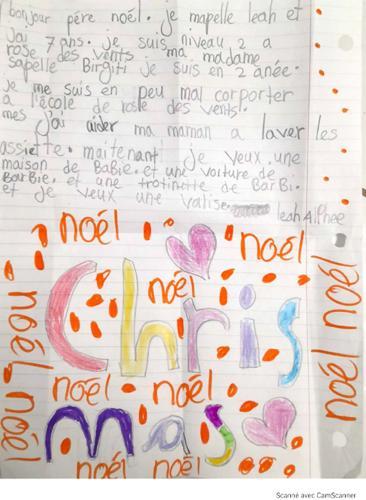 bonjour père noël. je mapelle leah et
j'ai 7 ans. je suis niveau 2 a
rose des vents ma madame
sapelle Birgiti je suis en 2 anée.
je me suis en peu mal corporter
a l'école de rose des vents.
mes j'ai aider ma maman a laver les
assiette. maitenant je veux une
maison de BaBie. et une voiture de
BarBie. et une trotinette de BarBi.
et je veux une valise.
leah Alphee
noël
noël
noël
Chris
noël noël
noël noël
noël noël
mas
noël noël
Scanné avec CamScanner